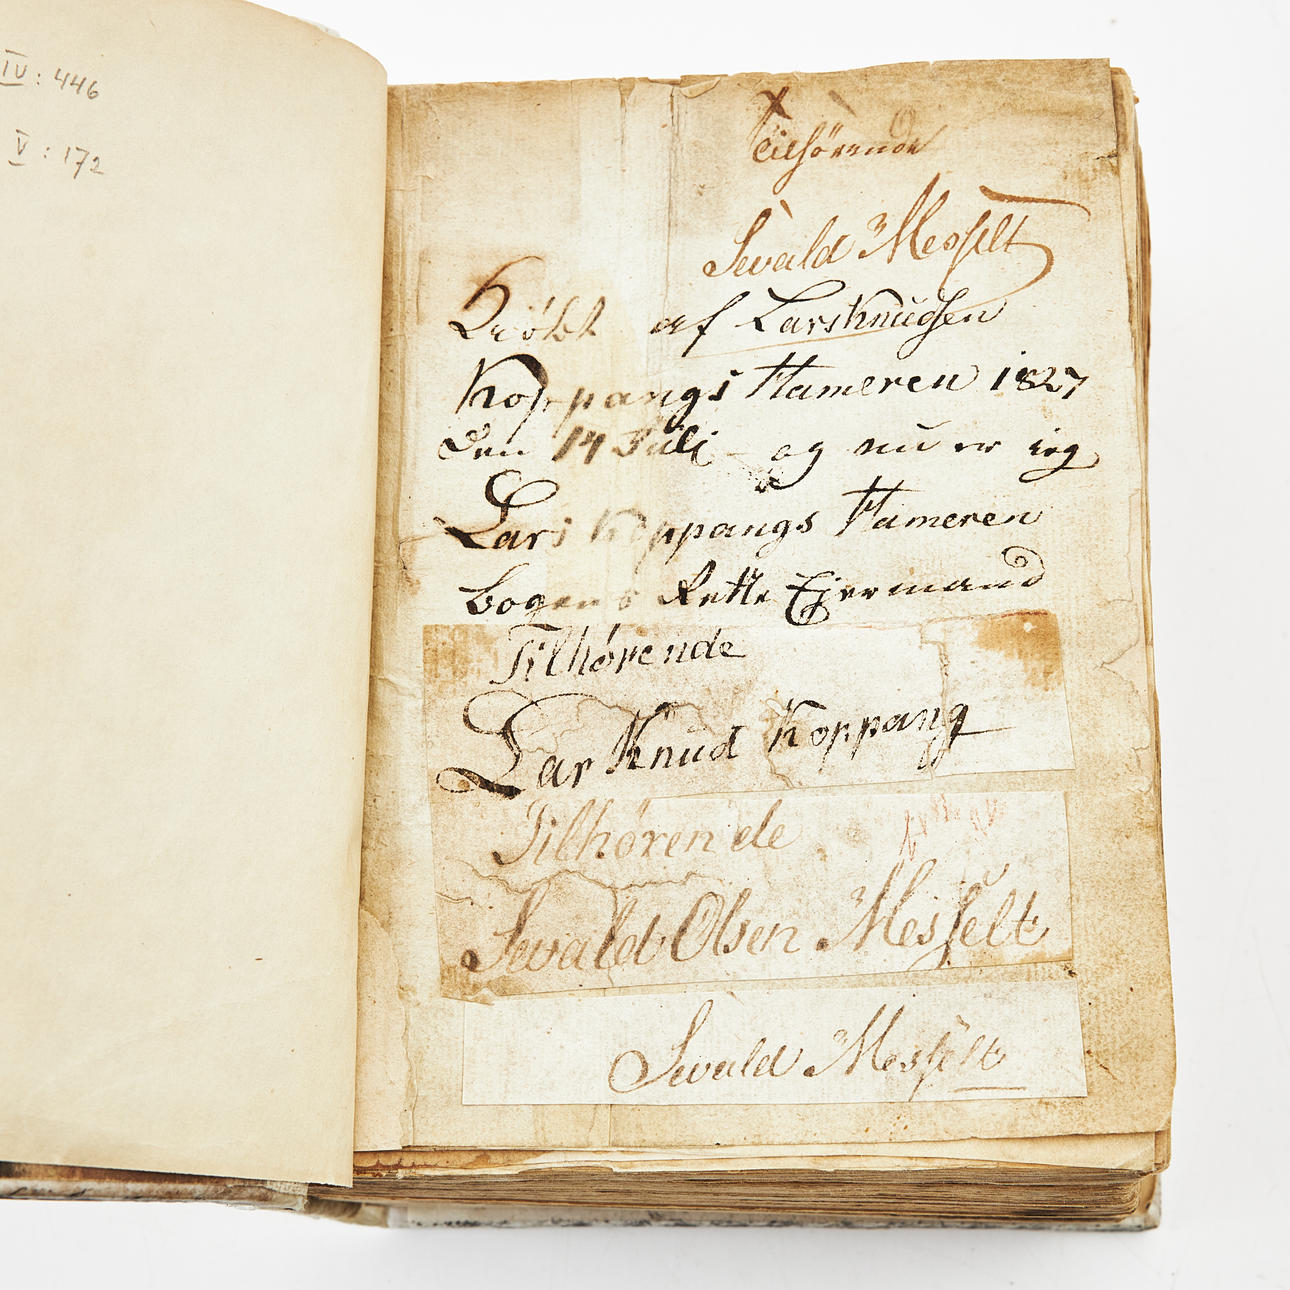 IV : 446
V : 172
X
Tilhørende
Sivald Messelt
Kiøbt af Lars Knudsen
Koppangs Hameren 1827
den 14 Juli - og nu er ieg
Lars Koppangs Hameren
bogens Rette Ejermand
Tilhørende
Lar Knud Koppang
Tilhørende
Sivald Olsen Messelt
Sivald Messelt